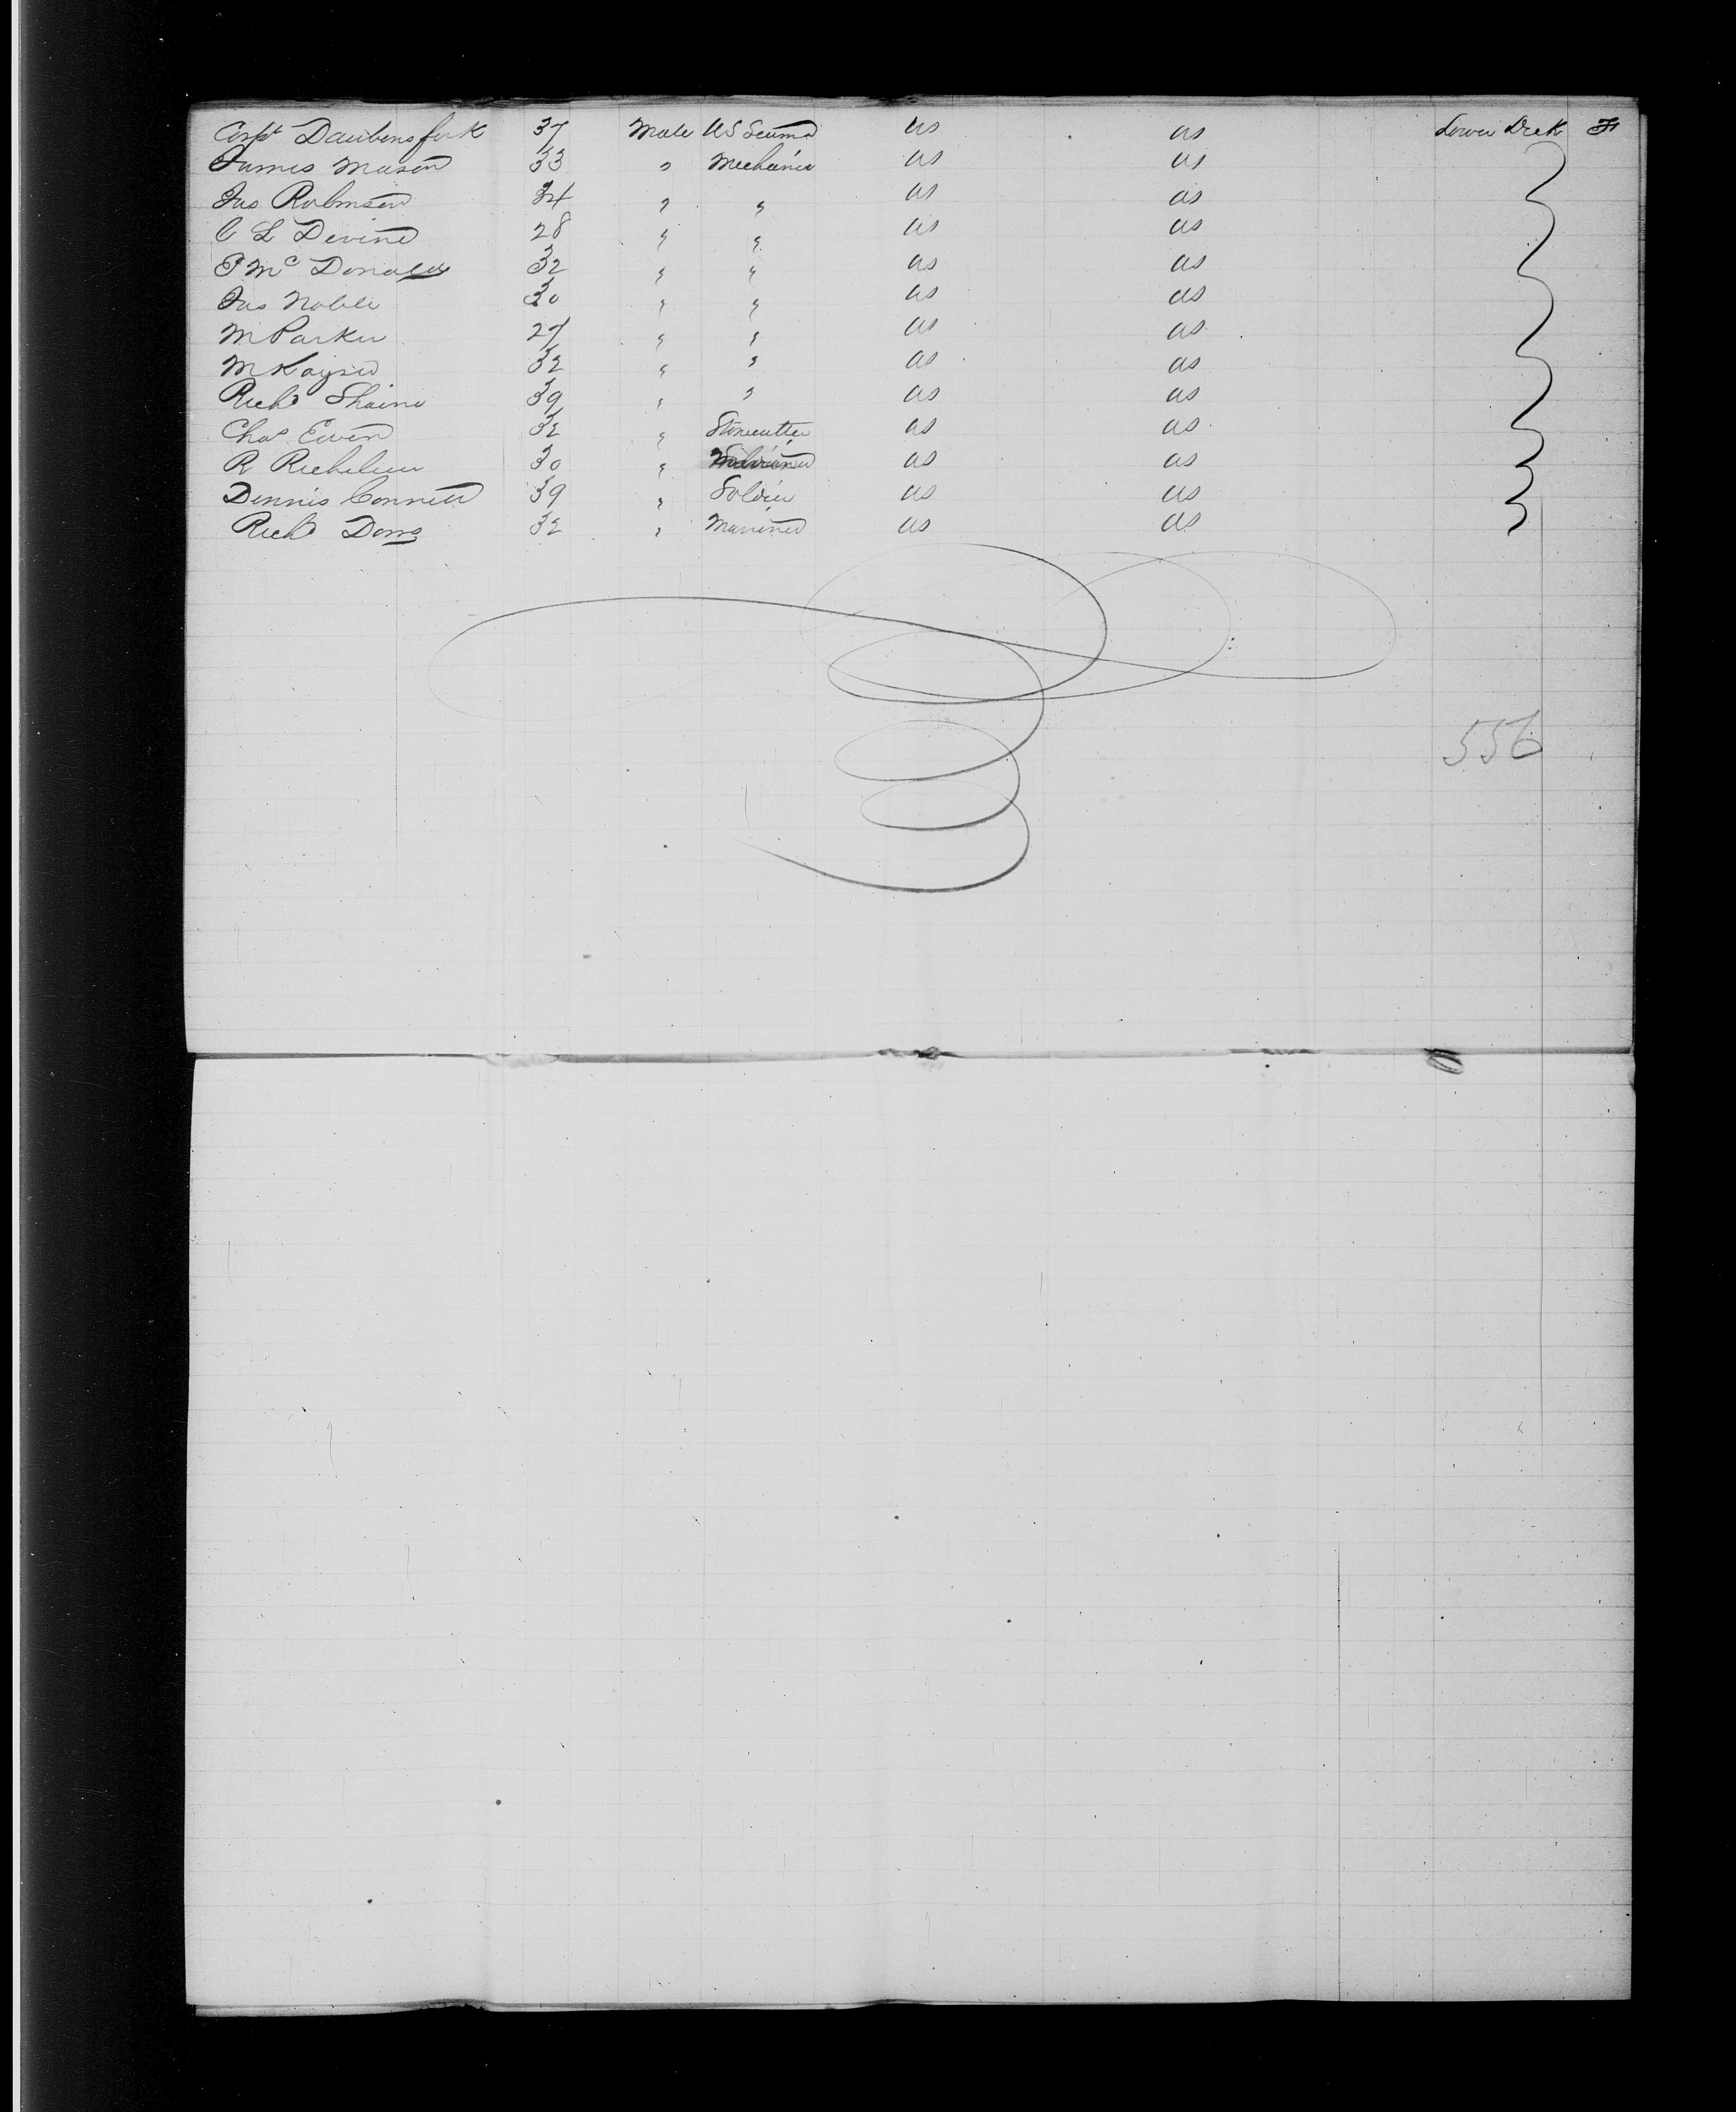 Corpl Daubensfuk 37 Male US Seaman US US Lower Deck F
James Mason 33 " Mechanic US US
Jas Robinson 34 " " US US
C L Devine 28 " " US US
P Mc Donald 32 " " US US
Jas Noble 30 " " US US
M Parker 27 " " US US
M Kayser 32 " " US US
Richd Shaine 39 " " US US
Chas Ewen 32 " Stonecutter US US
R Richelieu 30 " US US
Dennis Connell 39 " Soldier US US
Richd Dorns 32 " Mariner US US
556